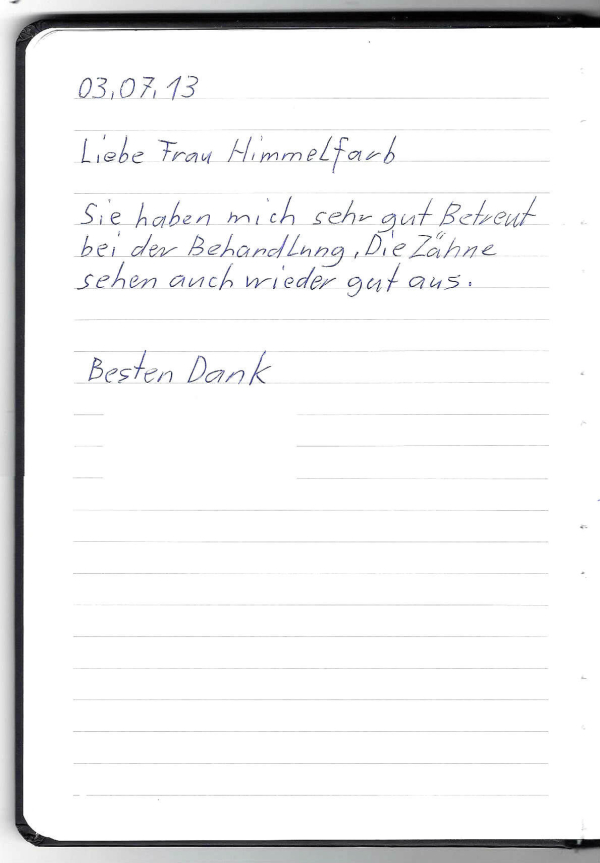 03.07.13
Liebe Frau Himmelfarb
Sie haben mich sehr gut Betreut
bei der Behandlung. Die Zähne
sehen auch wieder gut aus.
Besten Dank